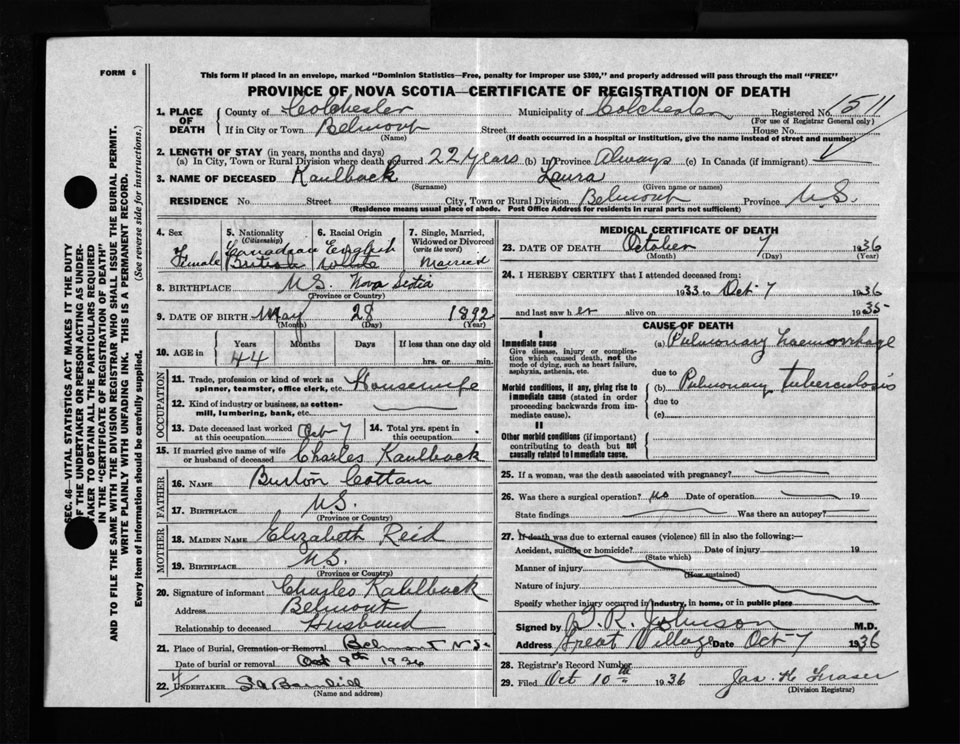 FORM 6
This form if placed in an envelope, marked "Dominion Statistics—Free, penalty for improper use $300," and properly addressed will pass through the mail "FREE"
PROVINCE OF NOVA SCOTIA—CERTIFICATE OF REGISTRATION OF DEATH
1. PLACE OF DEATH County of Colchester Municipality of Colchester Registered No. 1511
(For use of Registrar General only)
If in City or Town Belmont Street House No.
(Name) (If death occurred in a hospital or institution, give the name instead of street and number)
2. LENGTH OF STAY (in years, months and days)
(a) In City, Town or Rural Division where death occurred 22 years (b) In Province Always (c) In Canada (if immigrant)
3. NAME OF DECEASED Kaulback Laura
(Surname) (Given name or names)
RESIDENCE No. Street City, Town or Rural Division Belmont Province N.S.
(Residence means usual place of abode. Post Office Address for residents in rural parts not sufficient)
4. Sex Female
5. Nationality (Citizenship) Canadian British
6. Racial Origin English white
7. Single, Married, Widowed or Divorced (write the word) Married
8. BIRTHPLACE N.S. Nova Scotia
(Province or Country)
9. DATE OF BIRTH May 28 1892
(Month) (Day) (Year)
10. AGE in Years Months Days If less than one day old
44 hrs. or min.
OCCUPATION
11. Trade, profession or kind of work as spinner, teamster, office clerk, etc. Housewife
12. Kind of industry or business, as cotton-mill, lumbering, bank, etc.
13. Date deceased last worked at this occupation Oct 7
14. Total yrs. spent in this occupation
15. If married give name of wife or husband of deceased Charles Kaulback
FATHER
16. NAME Burton Cottam
17. BIRTHPLACE N.S.
(Province or Country)
MOTHER
18. MAIDEN NAME Elizabeth Reid
19. BIRTHPLACE N.S.
(Province or Country)
20. Signature of informant Charles Kaulback
Address Belmont
Relationship to deceased Husband
21. Place of Burial, Cremation or Removal Belmont N.S.
Date of burial or removal Oct 9th 1936
22. UNDERTAKER
(Name and address)
MEDICAL CERTIFICATE OF DEATH
23. DATE OF DEATH October 7 1936
(Month) (Day) (Year)
24. I HEREBY CERTIFY that I attended deceased from:
1933 to Oct 7 1936
and last saw her alive on 1935
CAUSE OF DEATH
I
Immediate cause
Give disease, injury or complication which caused death, not the mode of dying, such as heart failure, asphyxia, asthenia, etc.
(a) Pulmonary haemorrhage
due to
Morbid conditions, if any, giving rise to immediate cause (stated in order proceeding backwards from immediate cause).
(b) Pulmonary tuberculosis
due to
(c)
II
Other morbid conditions (if important) contributing to death but not causally related to immediate cause.
25. If a woman, was the death associated with pregnancy?
26. Was there a surgical operation? no Date of operation 19
State findings Was there an autopsy?
27. If death was due to external causes (violence) fill in also the following:—
Accident, suicide or homicide? Date of injury 19
(State which)
Manner of injury
(How sustained)
Nature of injury
Specify whether injury occurred in industry, in home, or in public place
Signed by J. R. Johnson M.D.
Address Great Village Date Oct 7 1936
28. Registrar's Record Number
29. Filed Oct 10th 1936 Jas. H. Fraser
(Division Registrar)
SEC. 46—VITAL STATISTICS ACT MAKES IT THE DUTY
OF THE UNDERTAKER OR PERSON ACTING AS UNDERTAKER TO OBTAIN ALL THE PARTICULARS REQUIRED
IN THE "CERTIFICATE OF REGISTRATION OF DEATH"
AND TO FILE THE SAME WITH THE DIVISION REGISTRAR WHO SHALL ISSUE THE BURIAL PERMIT.
WRITE PLAINLY WITH UNFADING INK. THIS IS A PERMANENT RECORD.
Every item of information should be carefully supplied. (See reverse side for instructions.)